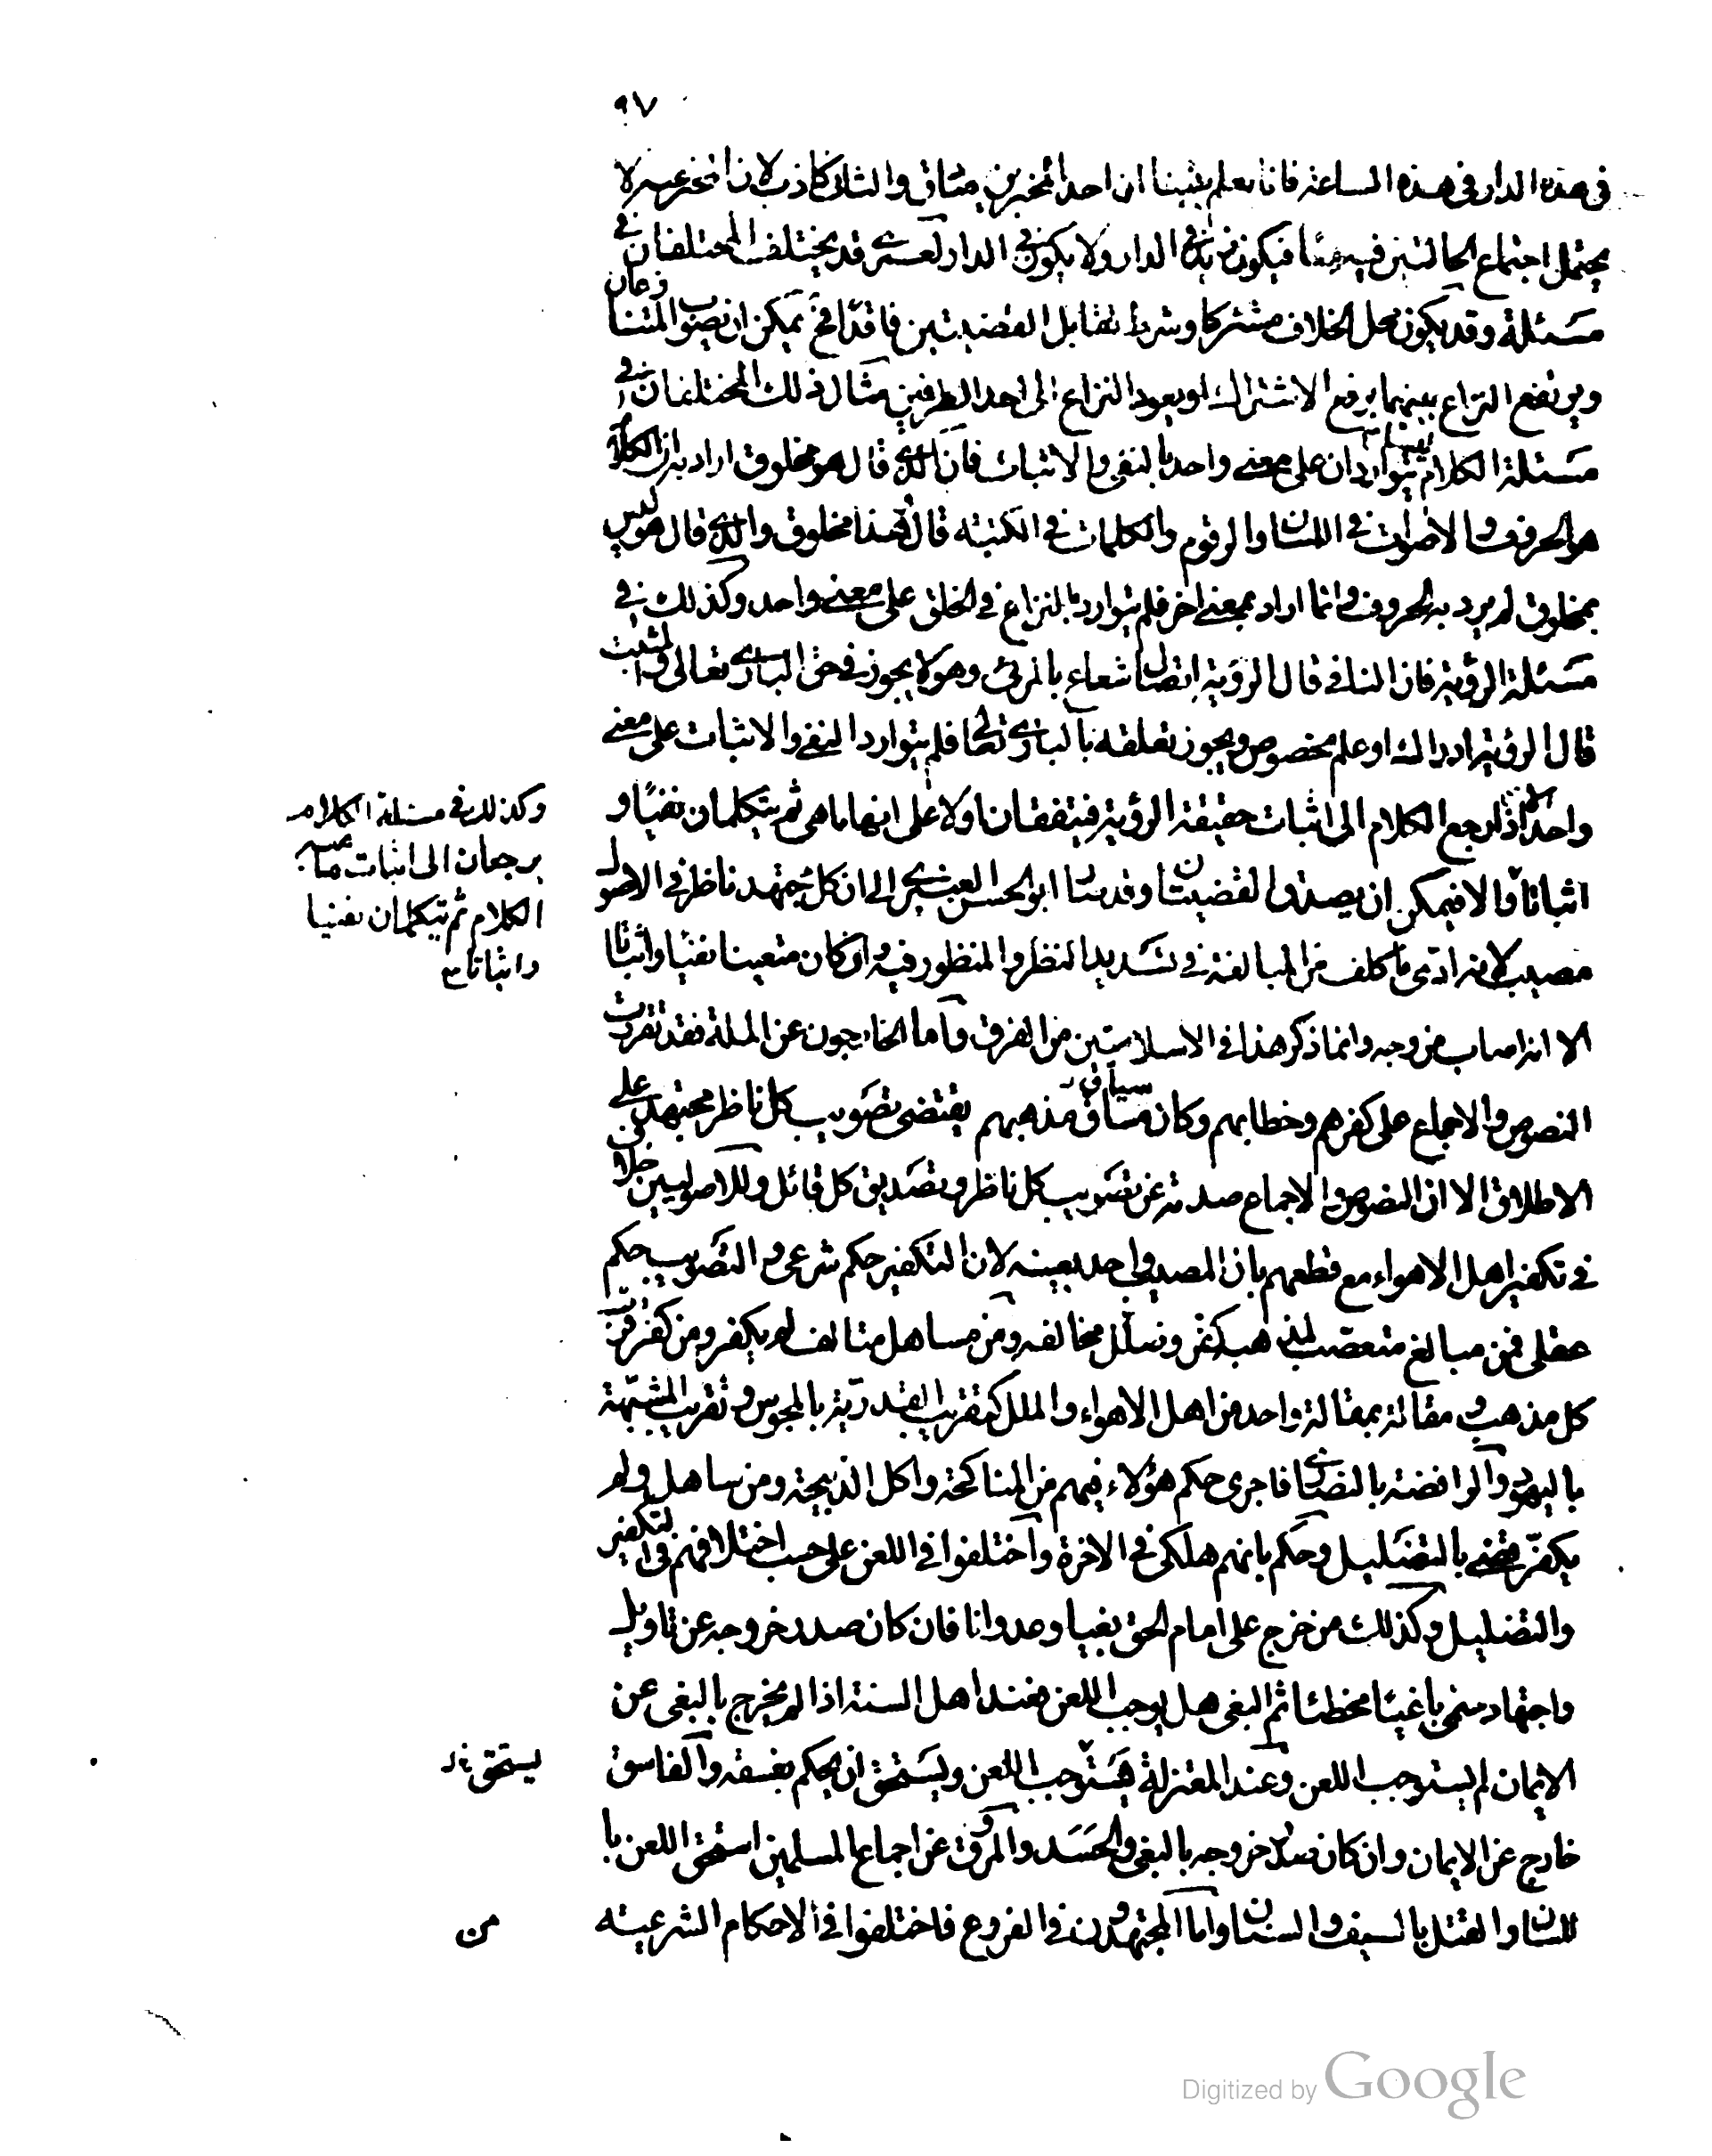 ٩٧
فى هذه الدار فى هذه الساعة فانا نعلم يقينا ان احد المخبرين صادق والثانى كاذب لان المخبر عنه لا
يحتمل اجتماع الحالتين فيه معا فيكون زيد فى الدار ولا يكون فى الدار لعمرى قد يختلف المختلفان فى
مسئلة وقد يكون محل الخلاف مشتركا وشرط تقابل القضيتين فاقدا فح يمكن ان يصوب المتنازعان
ويرتفع النزاع بينهما برفع الاشتراك او يعود النزاع الى احد الطرفين مثال ذلك المختلفان فى
مسئلة الكلام ليسا يتواردان على معنى واحد بالنفى والاثبات فان الذى قال هو مخلوق اراد به ان الكلام
هو الحروف والاصوات فى اللسان والرقوم والكلمات فى الكتبة قال فهذا مخلوق والذى قال هو ليس
بمخلوق لم يرد به الحروف وانما اراد بمعنى اخر فلم يتواردا بالنزاع فى الخلق على معنى واحد وكذلك فى
مسئلة الرؤية فان النافى قال الرؤية اتصال شعاع بالمرئى وهو لا يجوز فى حق البارى تعالى والمثبت
قال الرؤية ادراك او علم مخصوص ويجوز تعلقه بالبارى تعالى فلم يتوارد النفى والاثبات على معنى
واحد الا اذا رجع الكلام الى اثبات حقيقة الرؤية فيتفقان اولا على انها ما هى ثم يتكلمان نفيا و
وكذلك فى مسئلة الكلام
يرجعان الى اثبات ماهية
الكلام ثم يتكلمان نفيا
واثباتا
اثباتا والا فيمكن ان يصدق القضيتان وقد صار ابو الحسن العنبرى الى ان كل مجتهد ناظر فى الاصول
مصيب لانه ادى ما كلف من المبالغة فى تسديد النظر والمنظور فيه وان كان متعينا نفيا واثباتا
الا انه اصاب من وجه وانما ذكر هذا فى الاسلاميين من الفرق واما الخارجون عن الملة فقد تقررت
النصوص والاجماع على كفرهم وخطابهم وكان سياق مذهبهم يقتضى تصويب كل ناظر مجتهد على
الاطلاق الا ان النصوص والاجماع صدته عن تصويب كل ناظر وتصديق كل قائل وللاصوليين خلاف
فى تكفير اهل الاهواء مع قطعهم بان المصيب واحد بعينه لان التكفير حكم شرعى والتصويب حكم
عقلى فمن مبالغ متعصب لمذهبه كفر وضلل مخالفه ومن مساهل متالف لم يكفر ومن كفر قرن
كل مذهب ومقالة بمقالة واحد من اهل الاهواء والملل كتقريب القدرية بالمجوس وتقريب المشبهة
باليهود والرافضة بالنصارى فاجرى حكم هؤلاء فيهم من المناكحة واكل الذبيحة ومن ساهل ولم
يكفر قضى بالتضليل وحكم بانهم هلكى فى الاخرة واختلفوا فى اللعن على حسب اختلافهم فى التكفير
والتضليل وكذلك من خرج على امام الحق بغيا وعدوانا فان كان صدر خروجه عن تاويل
واجتهاد سمى باغيا مخطئا ثم البغى هل يوجب اللعن فعند اهل السنة اذا لم يخرج بالبغى عن
الايمان لم يستوجب اللعن وعند المعتزلة يستوجب اللعن ويستحق ان يحكم بفسقه والفاسق
يستحق
خارج عن الايمان وان كان صدر خروجه بالبغى والحسد والمروق عن اجماع المسلمين استحق اللعن با
للسان والقتل بالسيف والسنان واما المجتهدون فى الفروع فاختلفوا فى الاحكام الشرعية
من
Digitized by Google